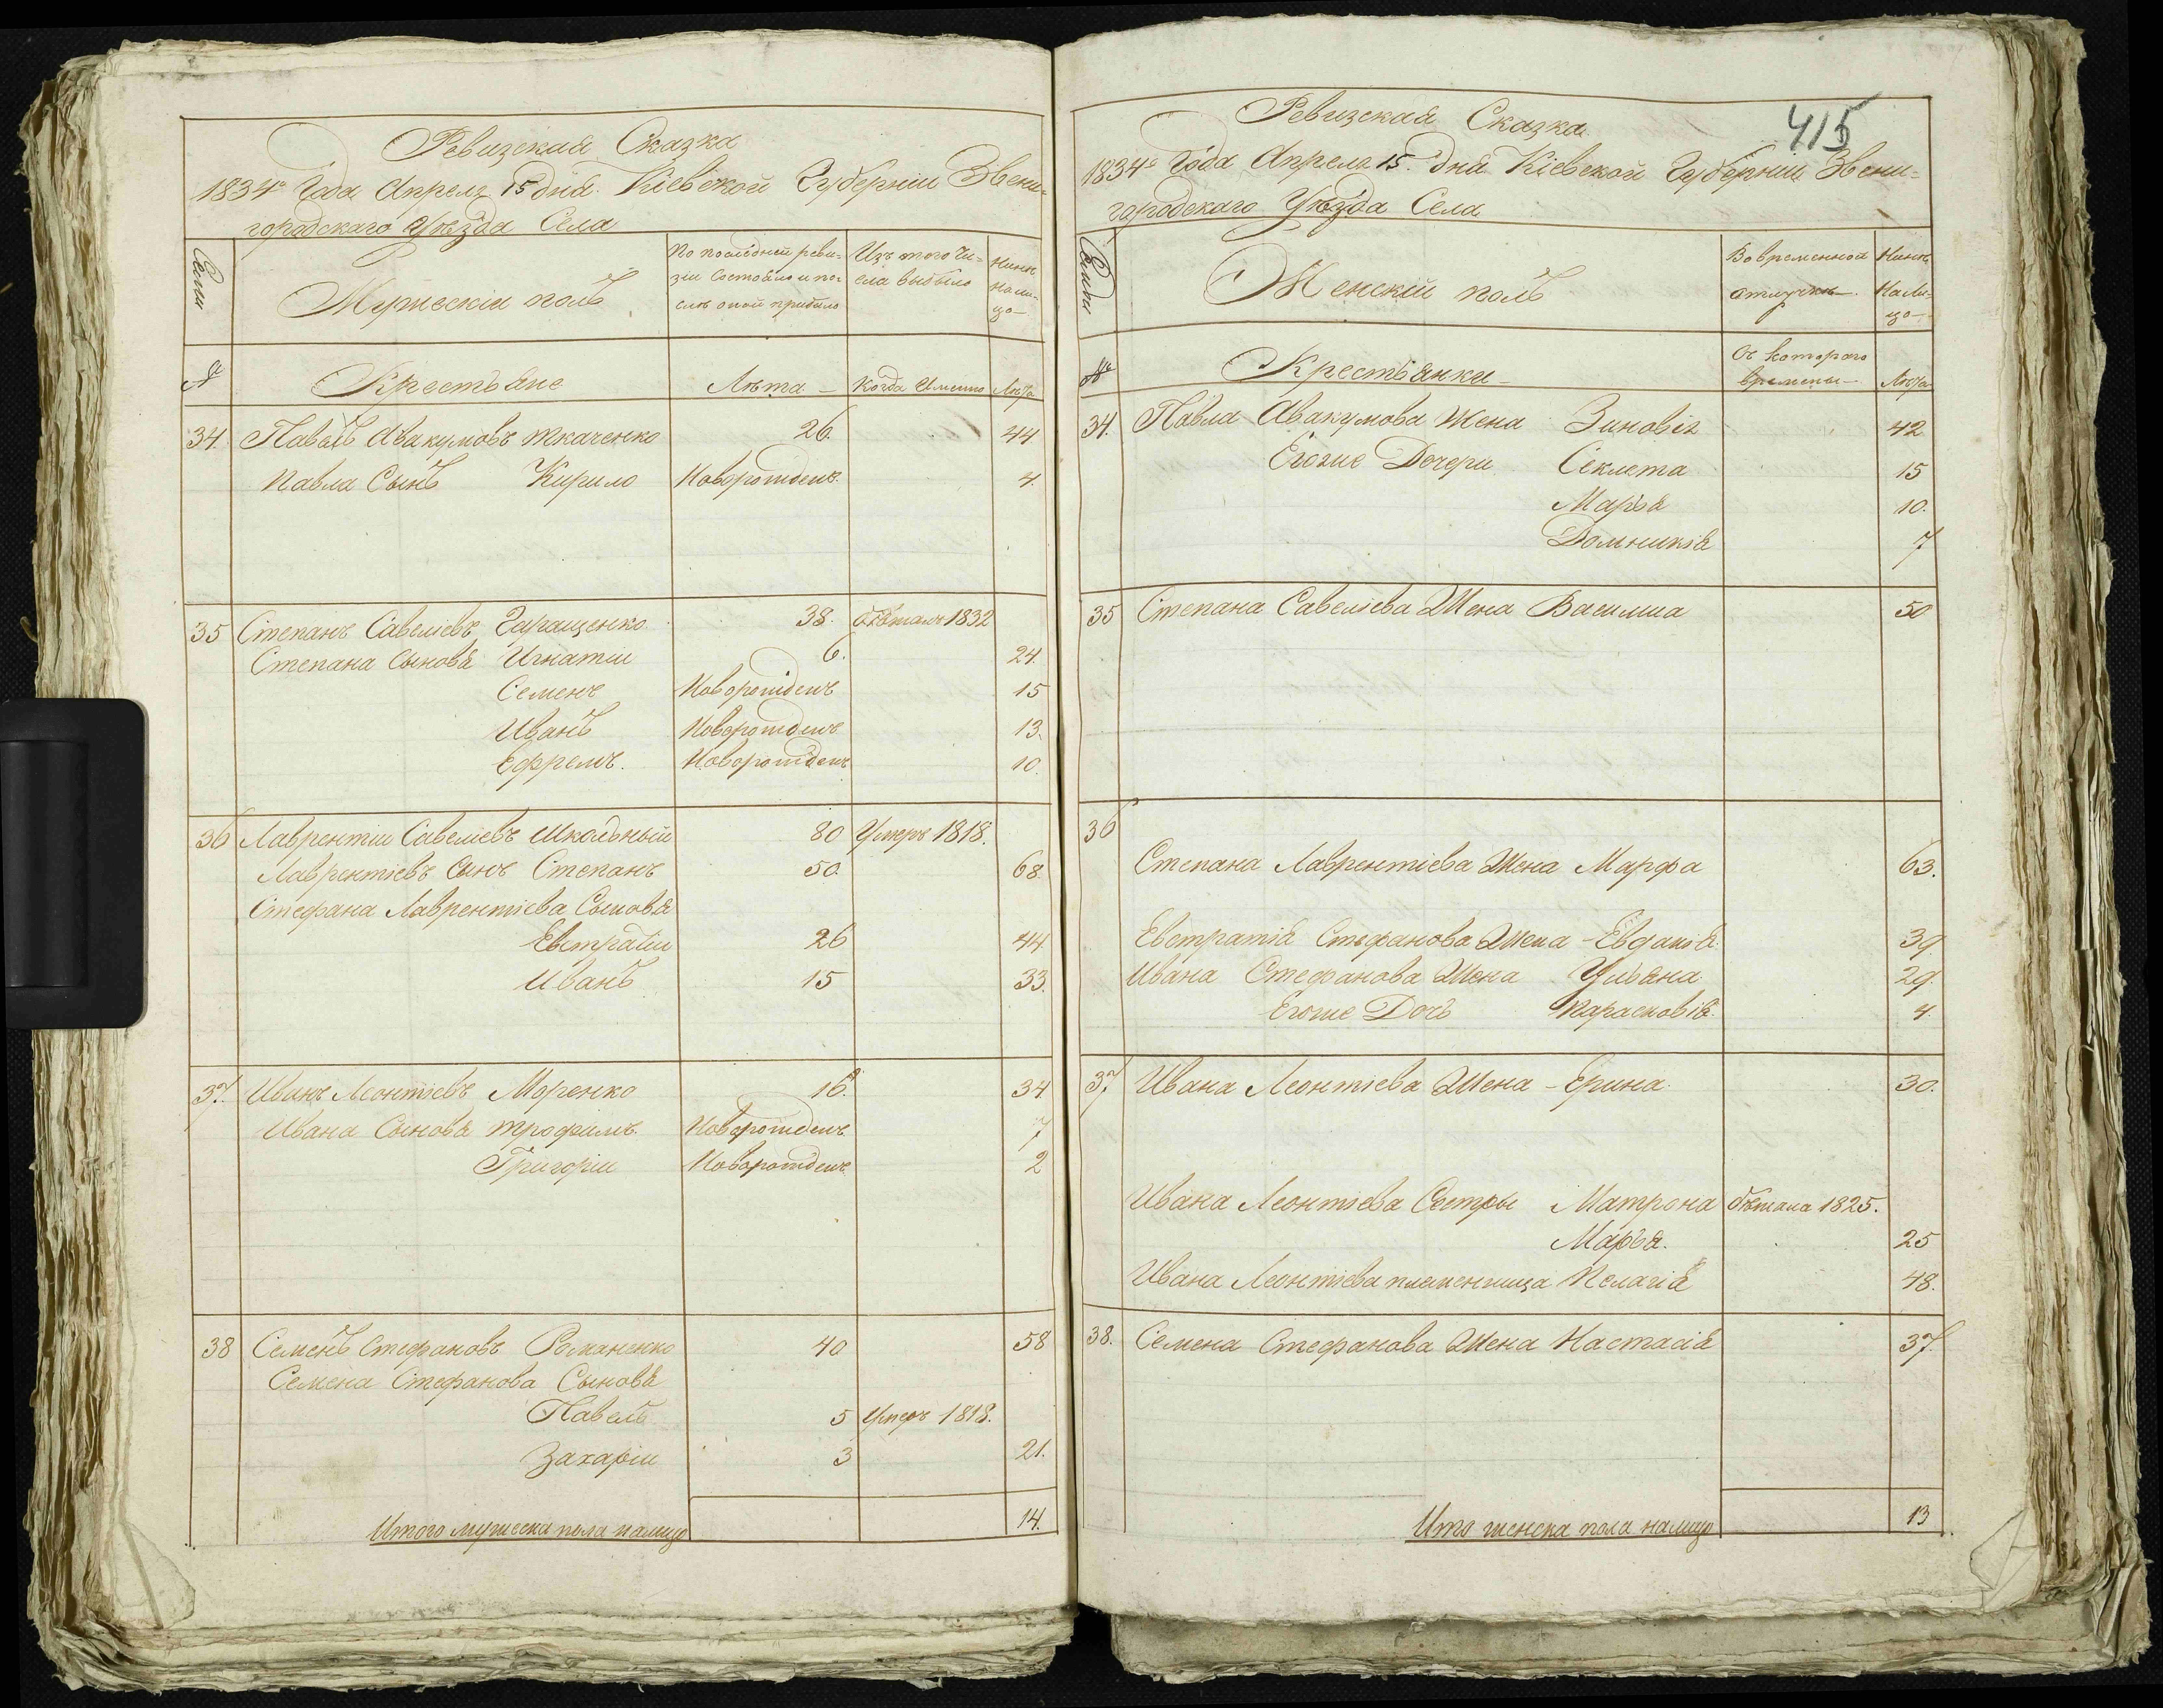 Ревизская Сказка
1834го Года Апреля 15 дня Кіевской Губерніи Звени-
городскаго Уѣзда Села
Семьи
Мужескій полъ
По послѣдней реви-
зіи состояло и по-
слѣ оной прибыло
Изъ того чи-
сла выбыло
Нынѣ
на ли-
цо
№
Крестьяне
Лѣта
Когда именно
Лѣта
34. Павелъ Авакумовъ Ткаченко 26. 44
Павла Сынъ Кирило Новорожденъ 4.
35 Степанъ Савеліевъ Геращенко 38. бѣжалъ 1832
Степана Сыновья Игнатій 6. 24.
Семенъ Новорожденъ 15
Иванъ Новорожденъ 13.
Ефремъ. Новорожденъ 10.
36 Лаврентій Савеліевъ Школьный 80 Умеръ 1818.
Лаврентіевъ Сынъ Степанъ 50. 68.
Стефана Лаврентіева Сыновья
Евстратій 26 44
Иванъ 15 33.
37. Иванъ Леонтіевъ Моренко 16. 34
Ивана Сыновья Трофимъ. Новорожденъ 7
Григорій Новорожденъ 2
38 Семенъ Стефановъ Романенко 40 58
Семена Стефанова Сыновья
Павелъ 5 Умеръ 1818.
Захарій 3 21.
Итого мужеска пола налицо 14.
415
Ревизская Сказка
1834го Года Апреля 15. Дня Кіевской Губерніи Звени-
городскаго Уѣзда Села
Семьи
Женскій полъ
Во временной
отлучкѣ
Нынѣ
на ли-
цо
№
Крестьянки
Съ котораго
времены
Лѣта
34. Павла Авакумова Жена Зиновія 42
Егоже Дочери Секлета 15
Марья 10.
Домникія 7
35 Степана Савеліева Жена Василиса 50
36
Степана Лаврентіева Жена Марфа 63.
Евстратія Стефанова Жена Евдокія. 39.
Ивана Стефанова Жена Ульяна 29.
Егоже Дочь Парасковія. 4.
37 Ивана Леонтіева Жена - Ерина. 30.
Ивана Леонтіева Сестры Матрона бѣжала 1825.
Марья. 25
Ивана Леонтіева племенница Пелагія 48.
38. Семена Стефанова Жена Настасія 37.
Ито женска пола налицо 13